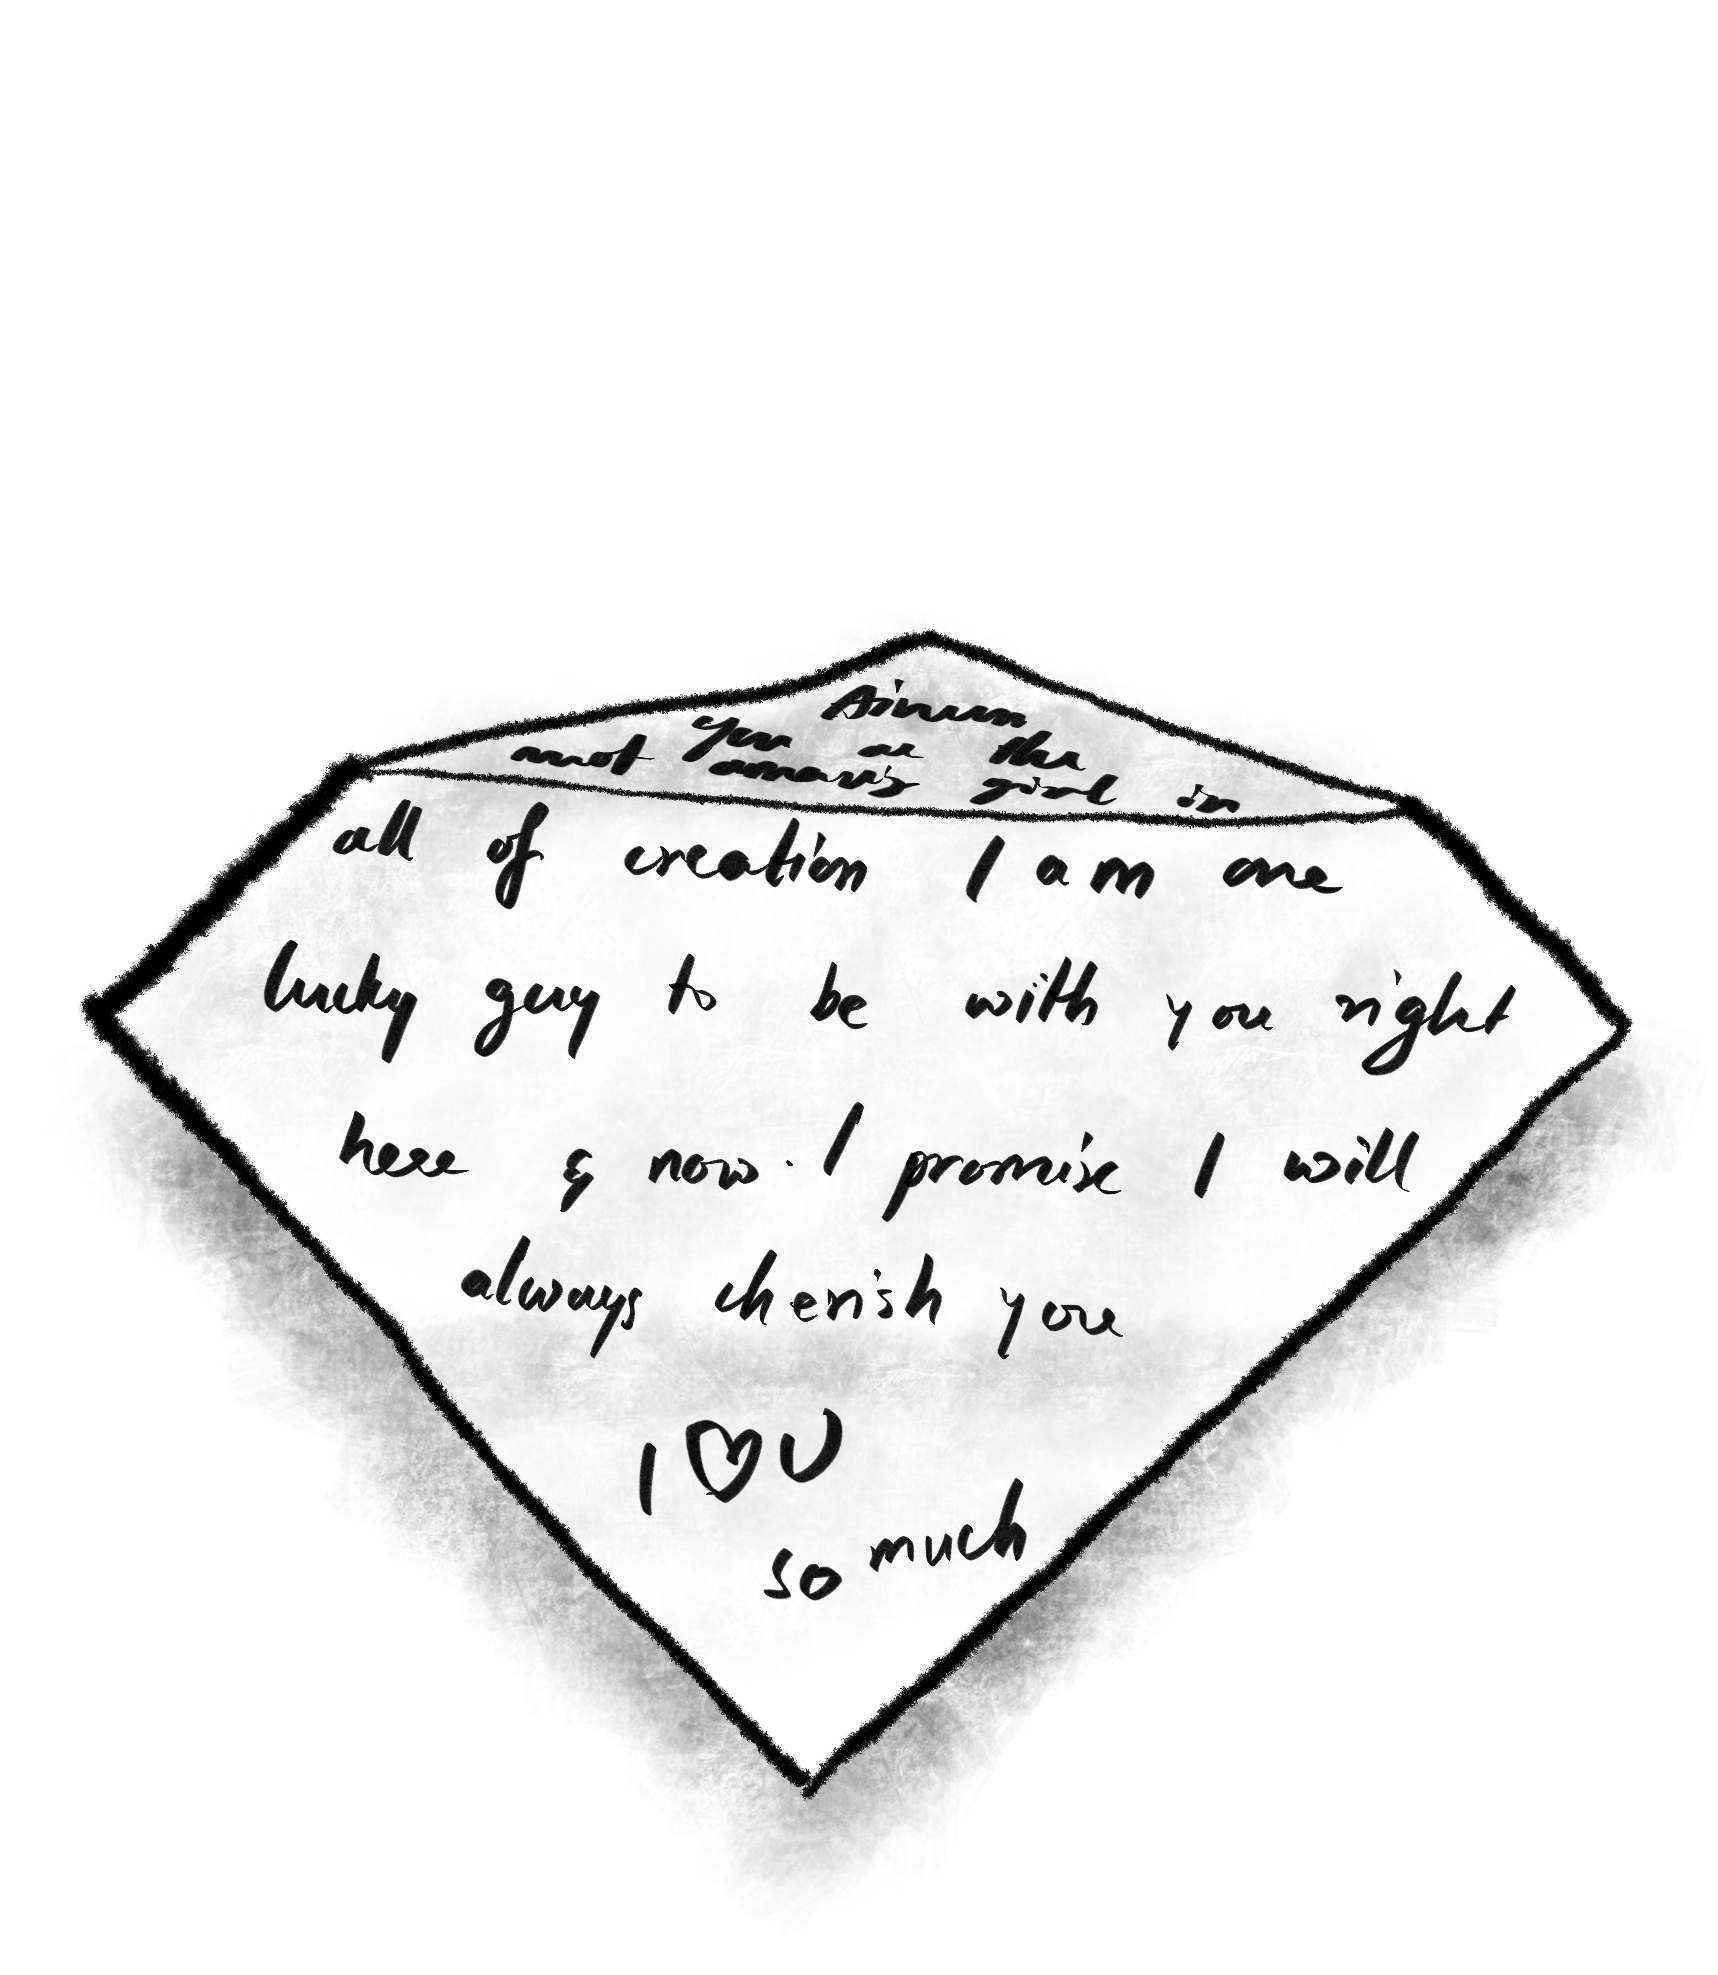 Ainum
you are the
most amazing girl in
all of creation I am one
lucky guy to be with you right
here & now. I promise I will
always cherish you
I ♡ U
so much